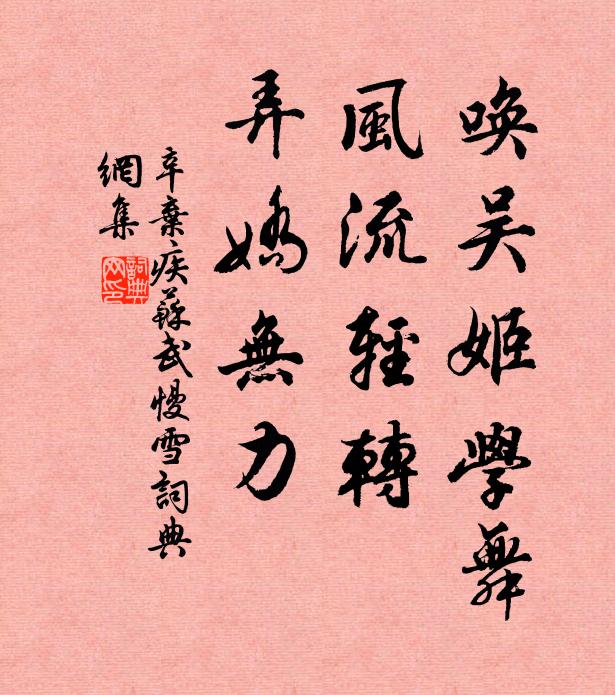 喚吴姬學舞
風流輕轉
弄嬌無力
辛棄疾蘇武慢雪詞典
網集
詞典網印